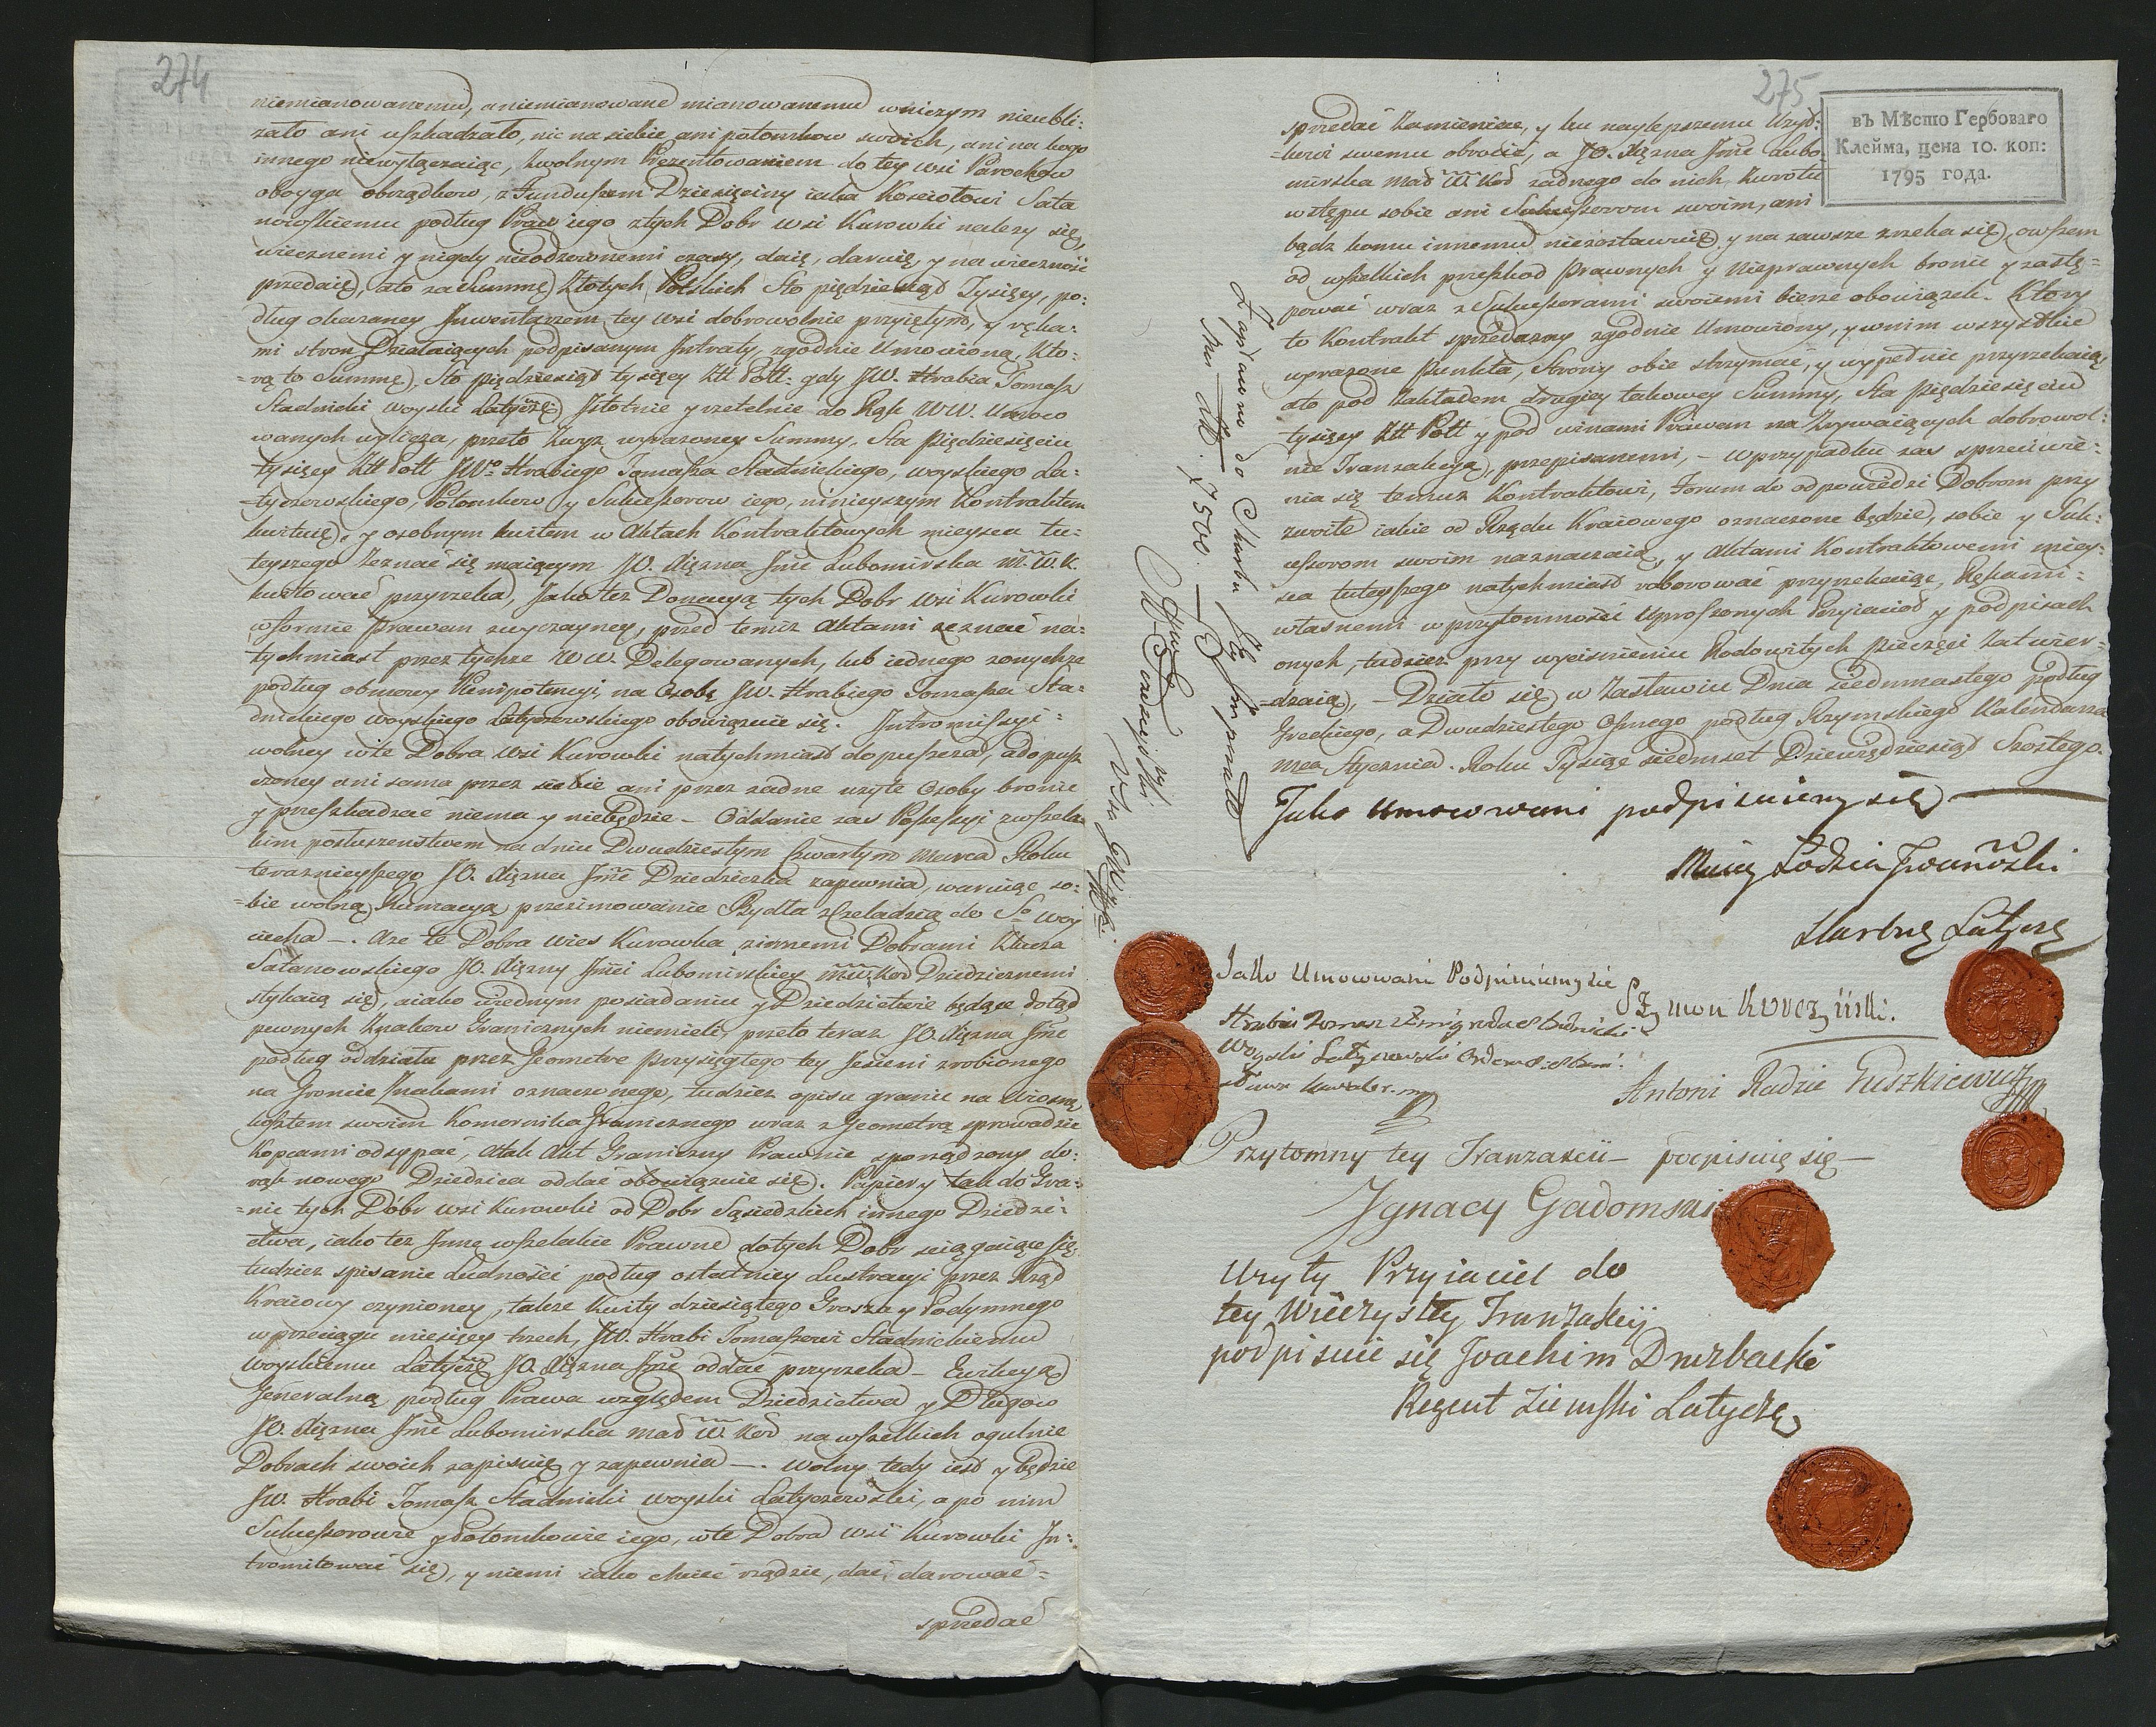 274
niemianowanemu, a niemianowane mianowanemu wniczym nieubli:
żało ani uszkadzało, nic na siebie ani potomkow swoich, ani na kogo
innego niewyłączaiąc, zwolnym Prezentowaniem do tey wsi Parochow
oboyga obrządkow, z Funduszem Dziesięciny iaka Kosciołowi Sata
nowskiemu podług Praw iego ztych Dobr wsi Kurowki należy się,
wiecznemi y nigdy nieodzownemi czasy, daię, daruię, y na wiecznośc
przedaię, a to za Summę Złotych Polskich Sto piędziesiąd Tysięcy, po:
dług okazaney Inwentarzem tey wsi dobrowolnie przyiętym, y ręka:
mi stron Działaiących podpisanym Intraty, zgodnie Umowioną, Kto:
=rą to Summę Sto pięździesiąd tysięcy Złł Poll: gdy JW. Hrabia Tomasz
Stadnicki woyski Latyczę Istotnie y rzetelnie do Rąk WW. Umoco
wanych wylicza, przeto zwyz wyrazoney Summy, Sta Pięćdziesięciu
tysięcy Złł Poll JWo Hrabiego Tomasza Stadnickiego, woyskiego La:
tyczewskiego, Potomkow y Sukcessorow iego, ninieyszym Kontraktem
kwituię, y osobnym kwitem w Aktach Kontraktowych mieysca tu:
teyszego zeznać się maiącym JO. Xiężna Jmć Lubomirska M. W. K.
kwitować przyrzeka, Jako tez Donacyą tych Dobr Wsi Kurowki
w formie Prawem zwyczayney, przed temiz Aktami zeznać na:
tychmiast przez tychze WW. Delegowanych, lub iednego zonychze
podług obmowy Plenipotencyi, na Osobę JW. Hrabiego Tomasza Sta:
dnickiego woyskiego Latyczewskiego obowiązuie się. Intromissyi:
wolney w te Dobra Wsi Kurowki natychmiast dopuszcza, a dopusz
czoney ani sama przez siebie ani przez zadne uzyte Osoby bronic
y przeszkadzac niema y niebędzie – Oddanie zas Possessyi zwszela
kim posłuszenstwem na dniu Dwudziestym Czwartym Marca Roku
teraznieyszego JO. Xiężna Jmć Dziedziczka zapewnia, waruiąc so:
=bie wolną Rumacyą przezimowanie Bydła z Czeladzią do So Woy
ciecha –. A ze te Dobra Wies Kurowka zinnemi Dobrami Klucza
Satanowskiego JO. Xiężny Jmci Lubomirskiey M. W. Kod Dziedzicznemi
stykaią się, a iako wiednym posiadaniu y Dziedzictwie będące dotąd
pewnych Znakow Granicznych niemieli, przeto teraz JO. Xiężna Jmć
podług oddziału przez Jeometrę Przysięgłego tey Jesieni zrobionego
na Gruncie Znakami oznaczonego, tudziez opisu granic na Wiosnę
kosztem swoim Komornika Granicznego wraz z Jeometrą sprowadzic
Kopcami odsypać, a tak Akt Graniczny Prawnie sporządzony do:
rąk nowego Dziedzica oddać obowiązuie się. Papiery tak do Gra:
=nic tych Dobr wsi Kurowki od Dobr Sąsiedzkich innego Dziedzi:
ctwa, iako tez Inne wszelakie Prawne do tych Dobr sciągaiące się,
tudziez spisanie Ludności podług ostatniey Lustracyi przez Rząd
Kraiowy czynioney, takze Kwity dziesiątego Grosza y Podymnego
w przeciągu miesięcy trzech, JW. Hrabi Tomaszowi Stadnickiemu
Woyskiemu Latyczę JO. Xiężna Jmć oddać przyrzeka – Ewikcyą
Jeneralną podług Prawa względem Dziedzictwa y Długow
JO. Xiężna Jmć Lubomirska Mad W. Kod na wszelkich ogulnie
Dobrach swoich zapisuię y zapewnia –. Wolny tedy iest y będzie
JW. Hrabi Tomasz Stadnicki woyski Latyczewski, a po nim
Sukcessorowie y Potomkowie iego, w te Dobra wsi Kurowki In:
tromitować się, y niemi iako chcieć rządzic, dać, darować =
sprzedać
275
въ Мѣсто Гербоваго
Клейма, цена 10. коп:
1795 года.
sprzedać Zamieniac, y ku naylepszemu Uzyt:
=kowi swemu obrocić, a JO. Xiężna Jmć Lubo
mirska Mad W. Kod zadnego do nich Kurowki
wstępu sobie ani Sukcessorom swoim, ani
bądz komu innemu niezostawuię, y na zawsze zrzeka się, owszem
od wszelkich przeszkod Prawnych y Nieprawnych bronic y zastę=
powac wraz z Sukcessorami swoiemi bierze obowiązek. Ktory
to Kontrakt sprzedazny zgodnie Umowiony, y wnim wszystkie
wyrazone Punkta, Strony obie strzymać, y wypełnic przyrzekaią
a to pod zakładem drugiey takowey Summy, Sta Pięździesięciu
tysięcy Złł Poll y pod winami Prawem na Zrywaiących dobrowol:
nie Tranzakcyą, przepisanemi, – w przypadku zas sprzeciwie:
nia się temuz Kontraktowi, Forum do odpowiedzi Dobrom przy
zwoite iakie od Rządu Kraiowego oznaczone będzie, sobie y Suk:
cessorom swoim naznaczaią, y Aktami Kontraktowemi miey:
sca tuteyszego natychmiast roborować przyrzekaiąc, Rękami:
własnemi w przytomności Uproszonych Przyiacioł y podpisach
onych, tudziez przy wycisnieniu Rodowitych pieczęci Zatwier-
=dzaią, – Działo się w Zasławiu Dnia Siedmnastego podług
Greckiego, a Dwudziestego Osmego podług Rzymskiego Kalendarza
Mca Stycznia. Roku Tysiąc siedmset Dziewiędziesiąd Szostego.
Jako Umocowani podpisuiemy się
Łodzia Iwanowski
Skarbnę Latyczę
Szymon Korczyński.
Antoni Radzic Guszkiewicz
Jako Umowwani Podpisuiemy sie
Hrabia Tomasz z Zmigroda Stadnicki
Woyski Latyczewski Orderu S. Stani:
sława Kawaler. mp
Przytomny tey Tranzakcii – podpisuię się –
Ignacy Gadomski
Uzyty Przyiaciel do
tey Wieczystey Tranzakcyi
podpisuie się Joachim Druzbacki
Regent Ziemski Latyczę
Zapłacono do Skarbu
Sum złł. 7500.